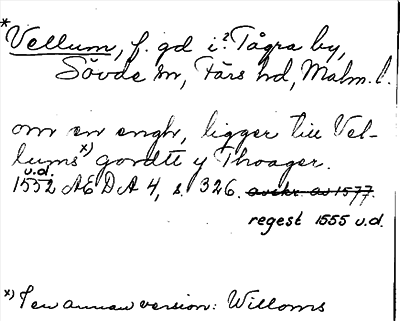 *Vellum, f. gd i ?Tågra by,
Sövde sn, Färs hd, Malm. l.
om en engh, ligger till Vel-
lums x) gordtt y Thoager.
u.d.
1532 AEDA 4, s. 326. avskr. av 1577.
regest 1555 u.d.
x) I en annan version: Willoms